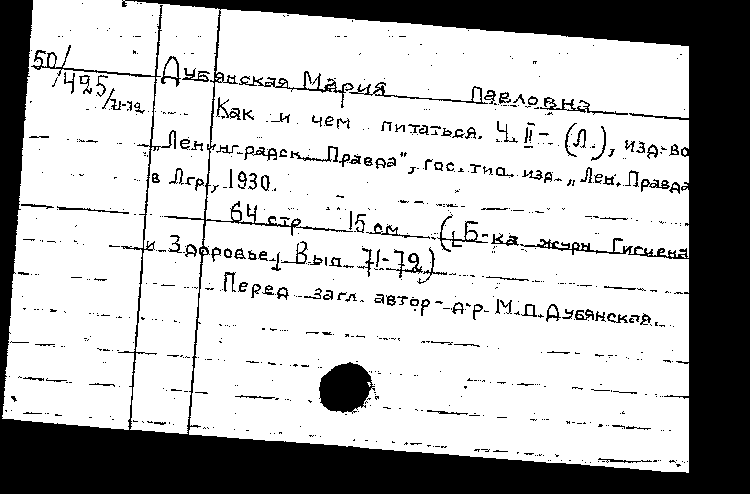 50/425/71-72
Дубянская Мария Павловна
Как и чем питаться. Ч. II – (Л.), изд-во
„Ленинградск. Правда", гос. тип. изд. „Лен. Правда
в Лгр., 1930.
64 стр 15 см. ([Б-ка журн. Гигиена
и Здоровье] Вып. 71-72)
Перед загл. автор – д-р М.П. Дубянская.